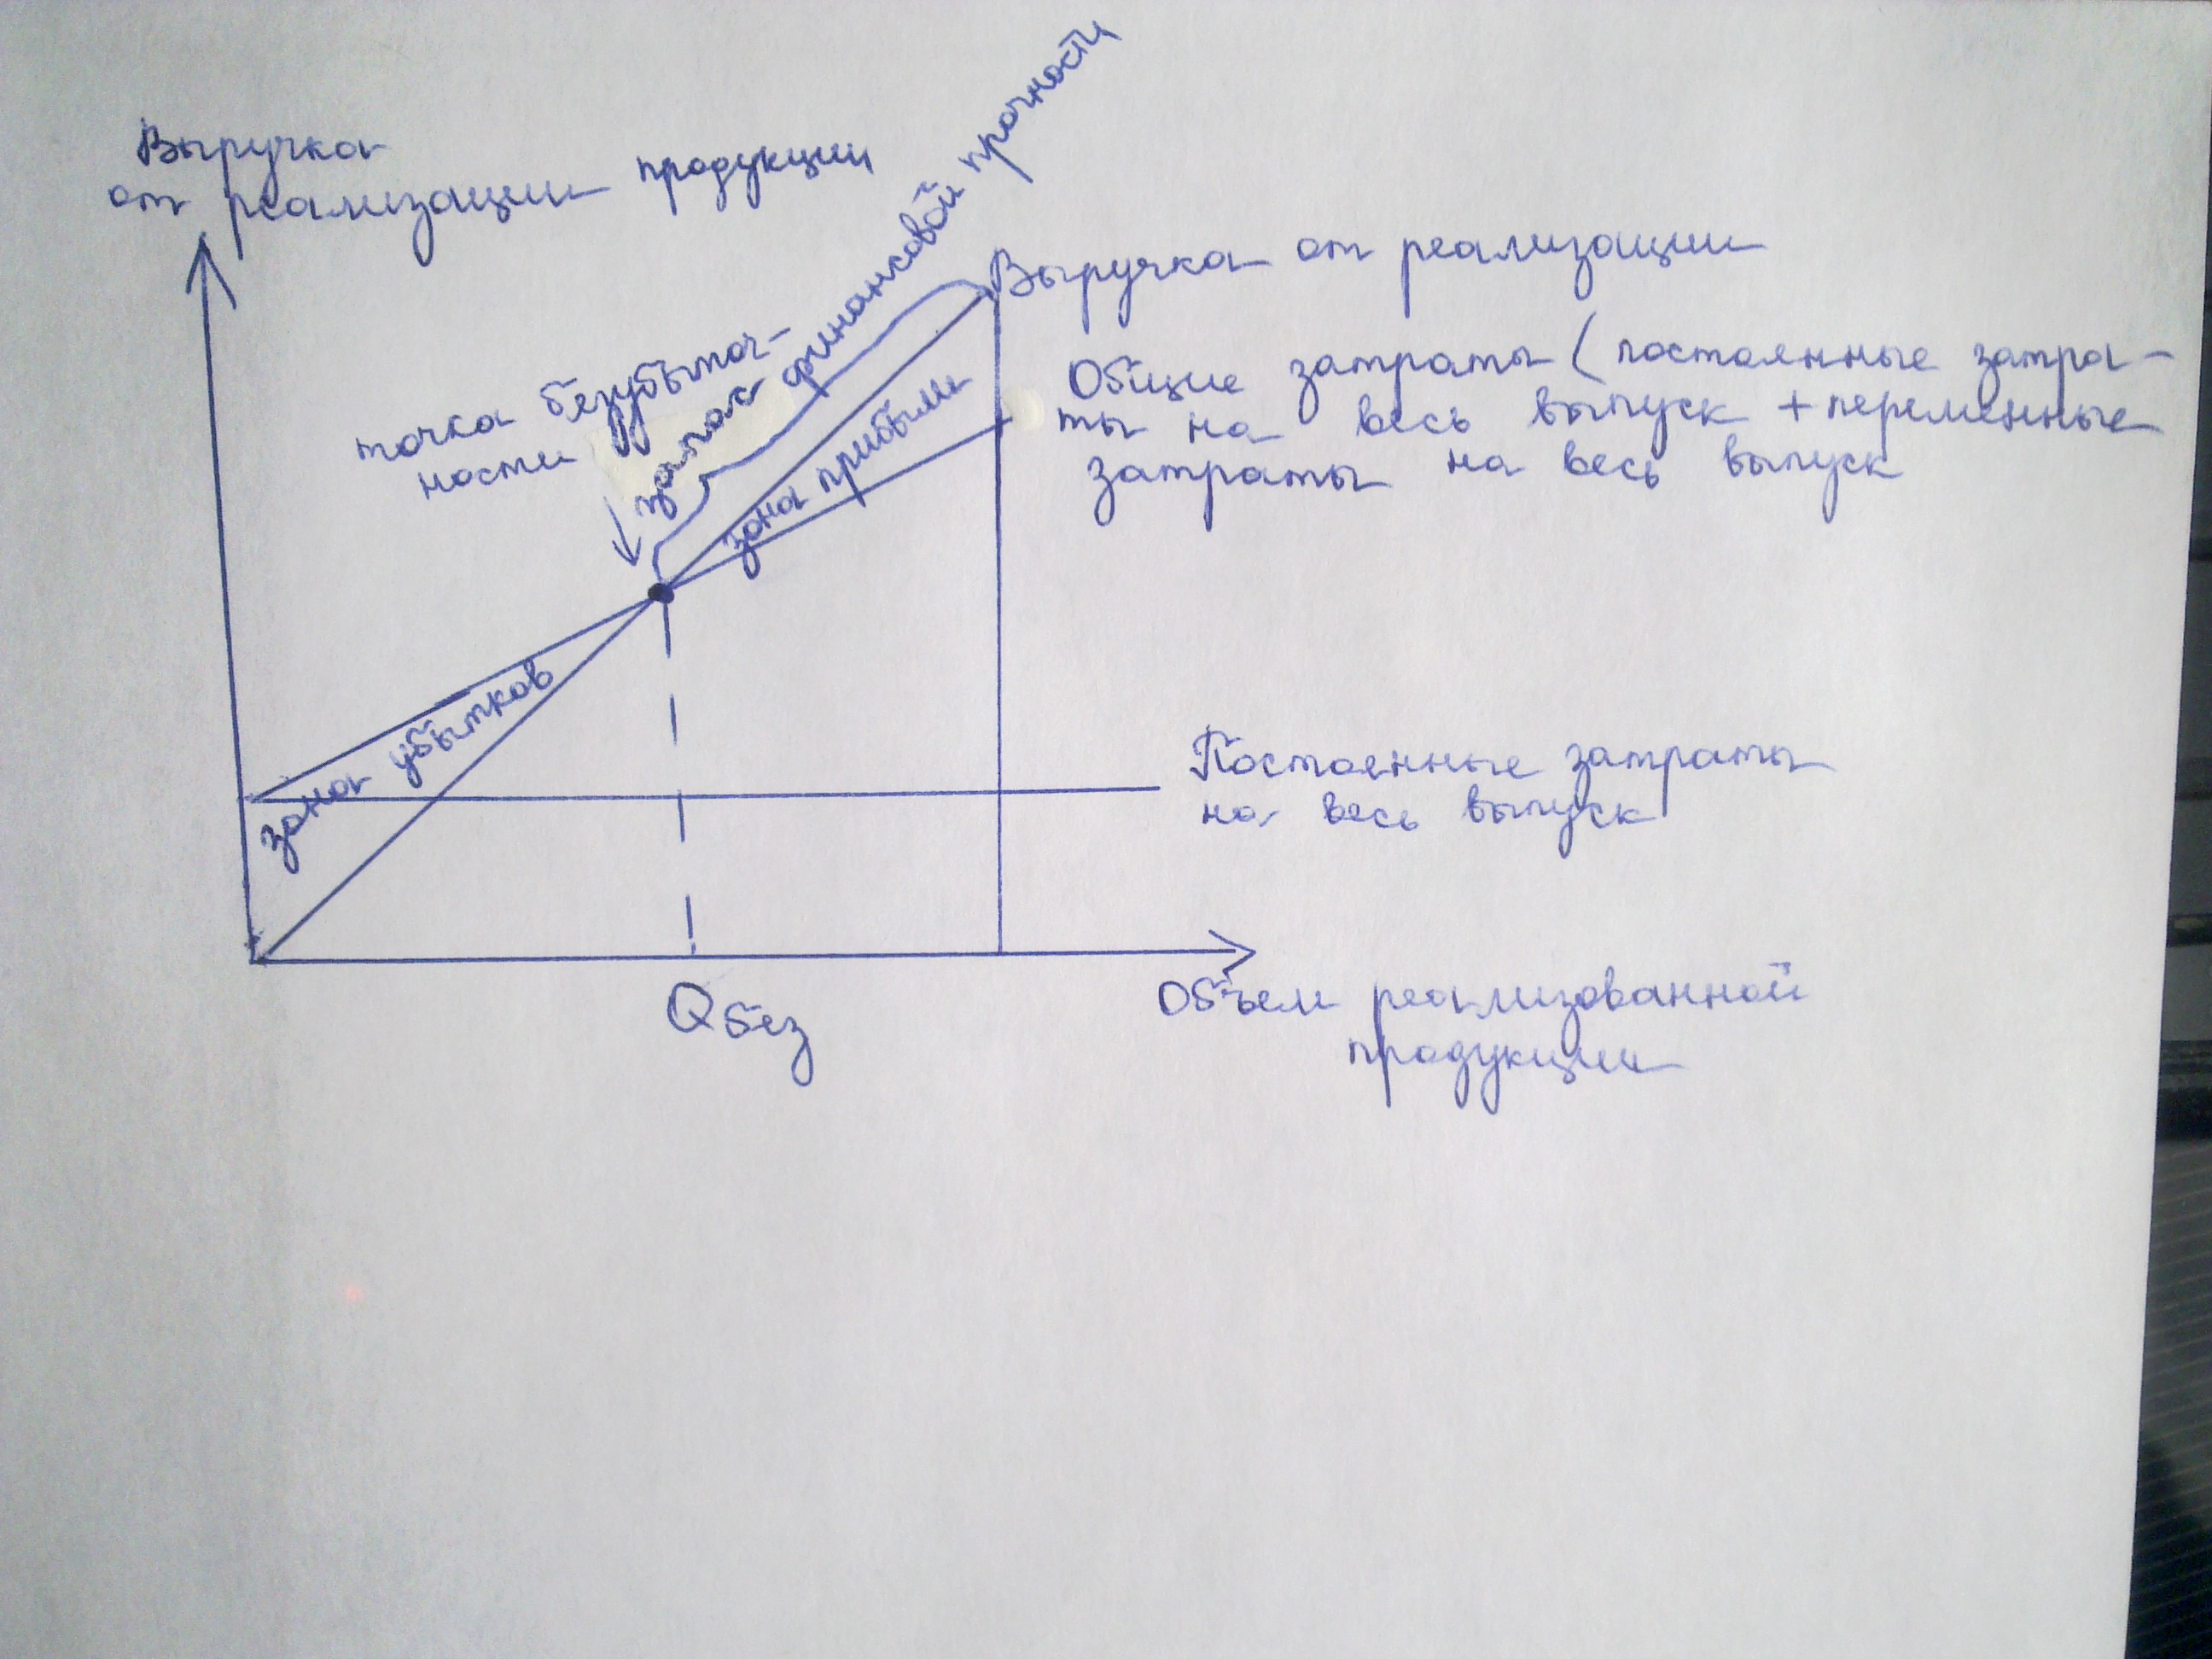 Выручка
от реализации продукции
запас финансовой прочности
Выручка от реализации
точка безубыточ-
ности
Общие затраты (постоянные затра-
ты на весь выпуск + переменные
затраты на весь выпуск
зона прибыли
зона убытков
Постоянные затраты
на весь выпуск
Qбез
Объем реализованной
продукции